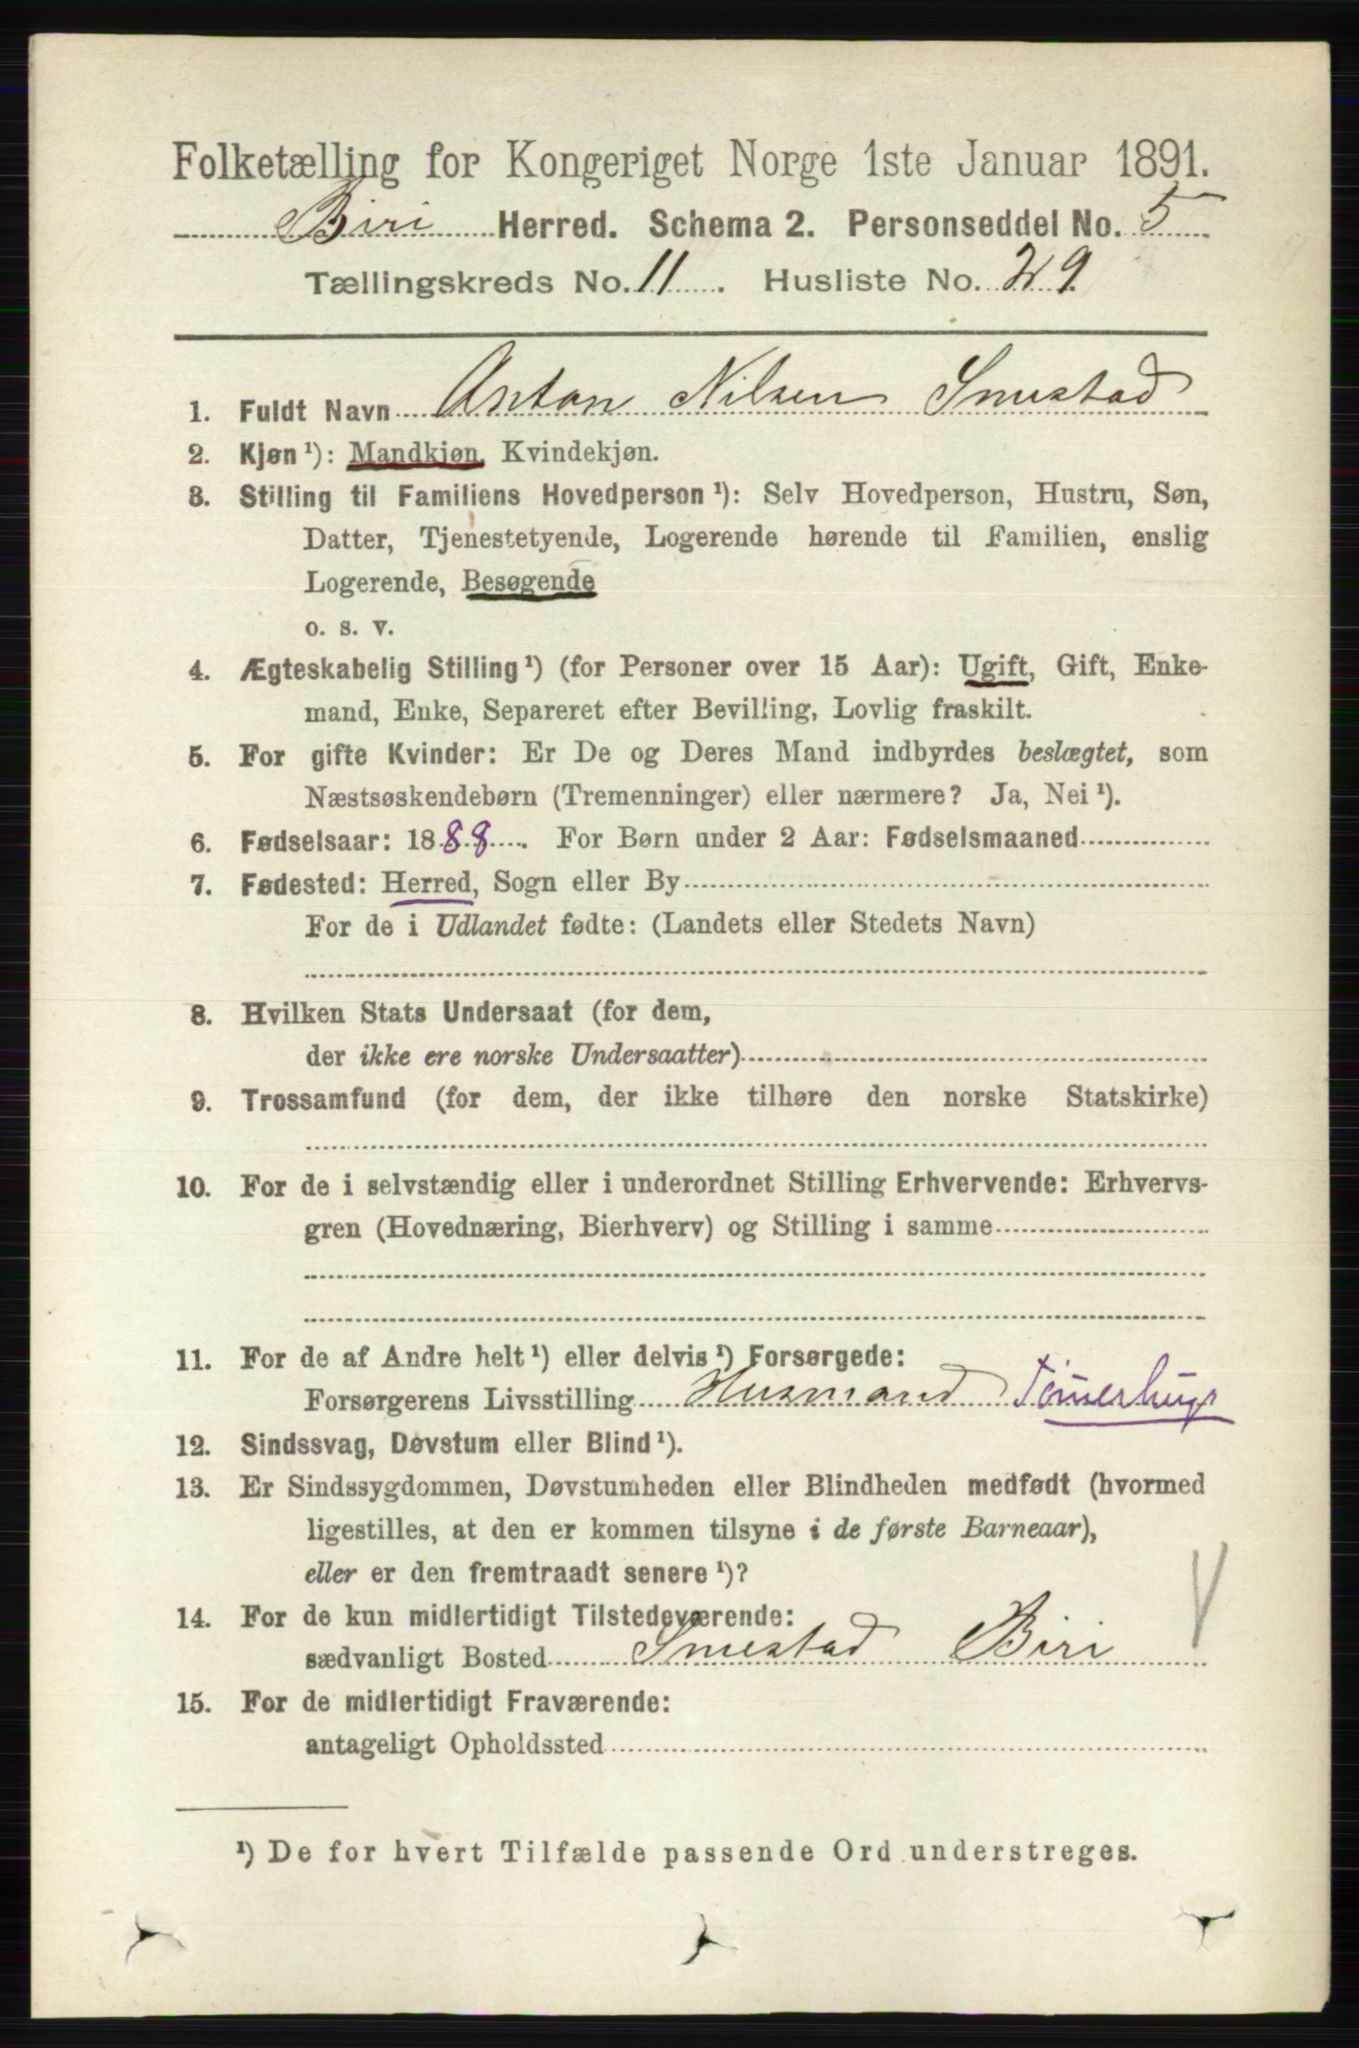 Folketælling for Kongeriget Norge 1ste Januar 1891.
Biri Herred. Schema 2. Personseddel No. 5
Tællingskreds No. 11. Husliste No. 29.
1. Fuldt Navn Anton Nilsen Smestad
2. Kjøn ¹): Mandkjøn, Kvindekjøn.
3. Stilling til Familiens Hovedperson ¹): Selv Hovedperson, Hustru, Søn,
Datter, Tjenestetyende, Logerende hørende til Familien, enslig
Logerende, Besøgende
o. s. v.
4. Ægteskabelig Stilling ¹) (for Personer over 15 Aar): Ugift, Gift, Enke-
mand, Enke, Separeret efter Bevilling, Lovlig fraskilt.
5. For gifte Kvinder: Er De og Deres Mand indbyrdes beslægtet, som
Næstsøskendebørn (Tremenninger) eller nærmere? Ja, Nei ¹).
6. Fødselsaar: 1888. For Børn under 2 Aar: Fødselsmaaned
7. Fødested: Herred, Sogn eller By
For de i Udlandet fødte: (Landets eller Stedets Navn)
8. Hvilken Stats Undersaat (for dem,
der ikke ere norske Undersaatter)
9. Trossamfund (for dem, der ikke tilhøre den norske Statskirke)
10. For de i selvstændig eller i underordnet Stilling Erhvervende: Erhvervs-
gren (Hovednæring, Bierhverv) og Stilling i samme
11. For de af Andre helt ¹) eller delvis ¹) Forsørgede:
Forsørgerens Livsstilling Husmand Tømerhugr
12. Sindssvag, Døvstum eller Blind ¹).
13. Er Sindssygdommen, Døvstumheden eller Blindheden medfødt (hvormed
ligestilles, at den er kommen tilsyne i de første Barneaar),
eller er den fremtraadt senere ¹)?
14. For de kun midlertidigt Tilstedeværende:
sædvanligt Bosted Smestad Biri
15. For de midlertidigt Fraværende:
antageligt Opholdssted
¹) De for hvert Tilfælde passende Ord understreges.